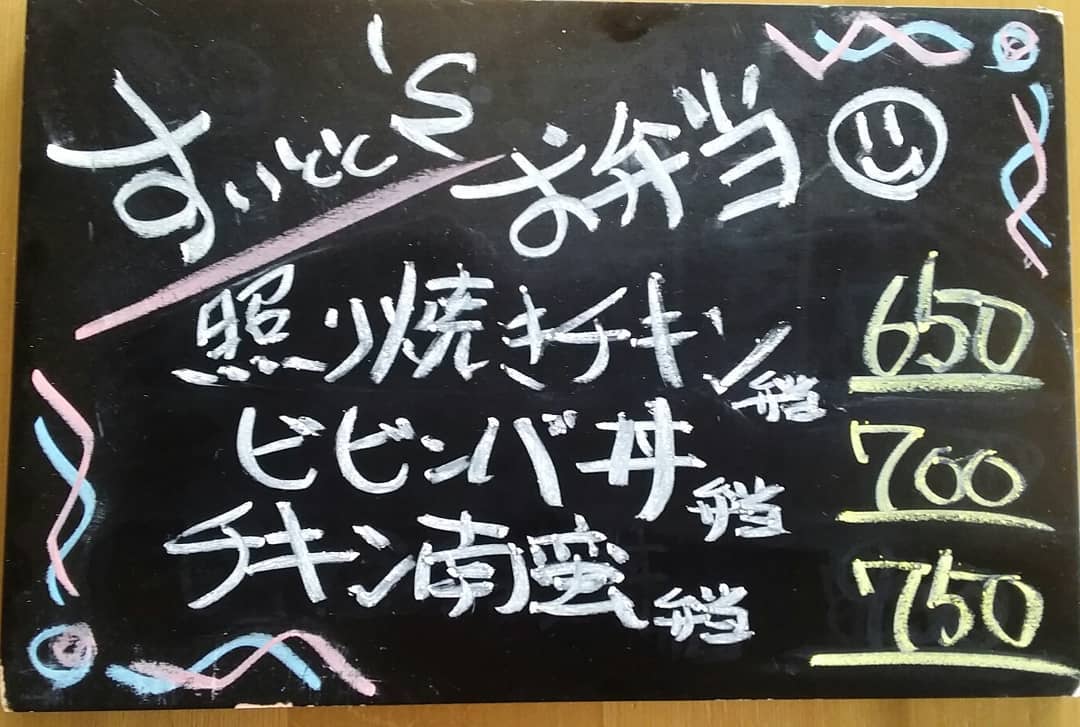 すいとと's お弁当
照り焼きチキン弁当 650
ビビンバ丼弁当 700
チキン南蛮弁当 750